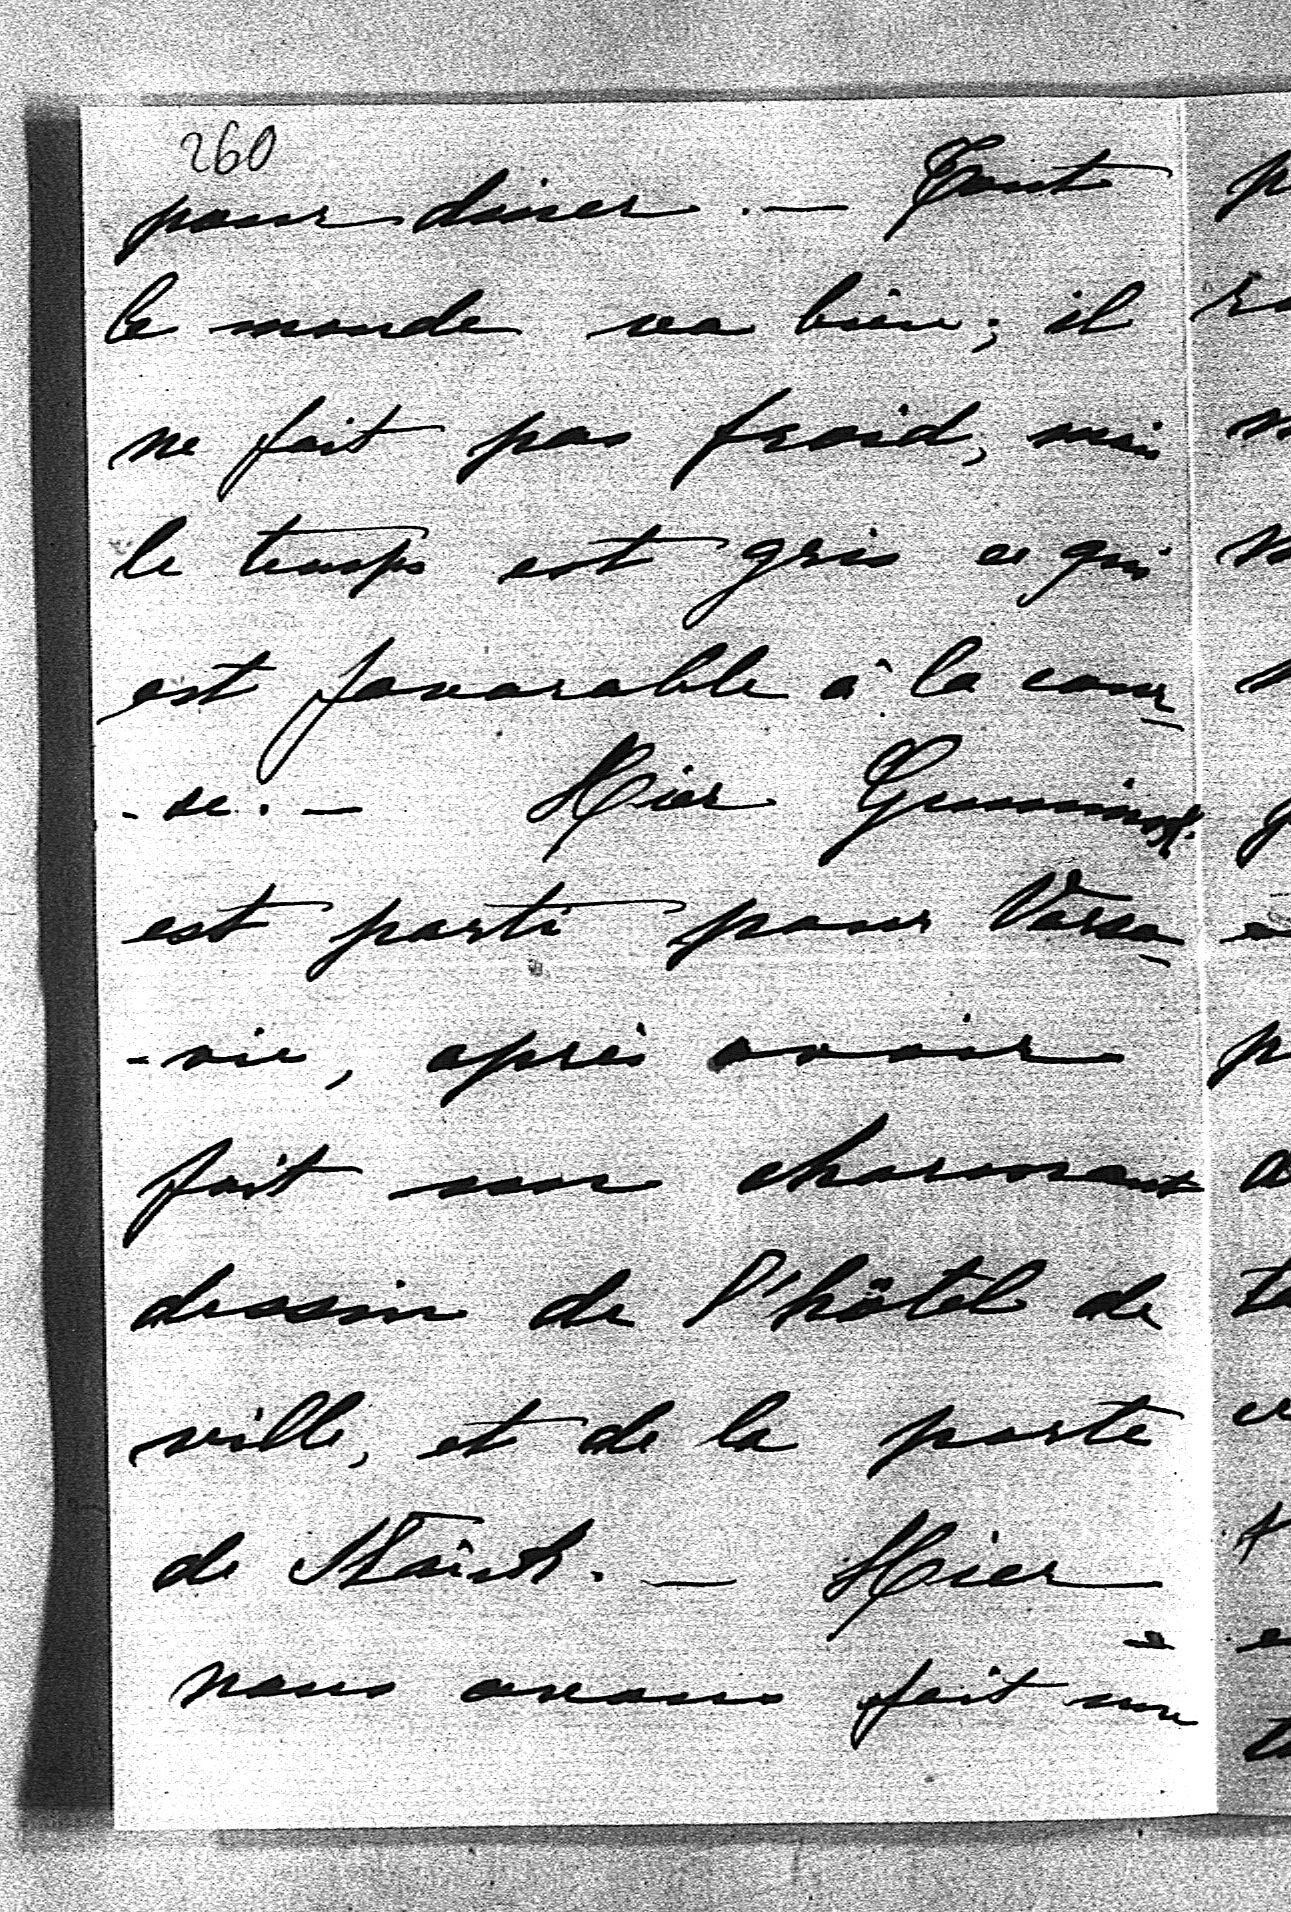 260
pour diner. — Tout
le monde va bien; il
ne fait pas froid, mais
le temps est gris ce qui
est favorable à la cour
-se. — Hier
est parti pour Varso
-vie, après avoir
fait un charmant
dessin de l'hôtel de
ville, et de la porte
de — Hier
nous avons fait une